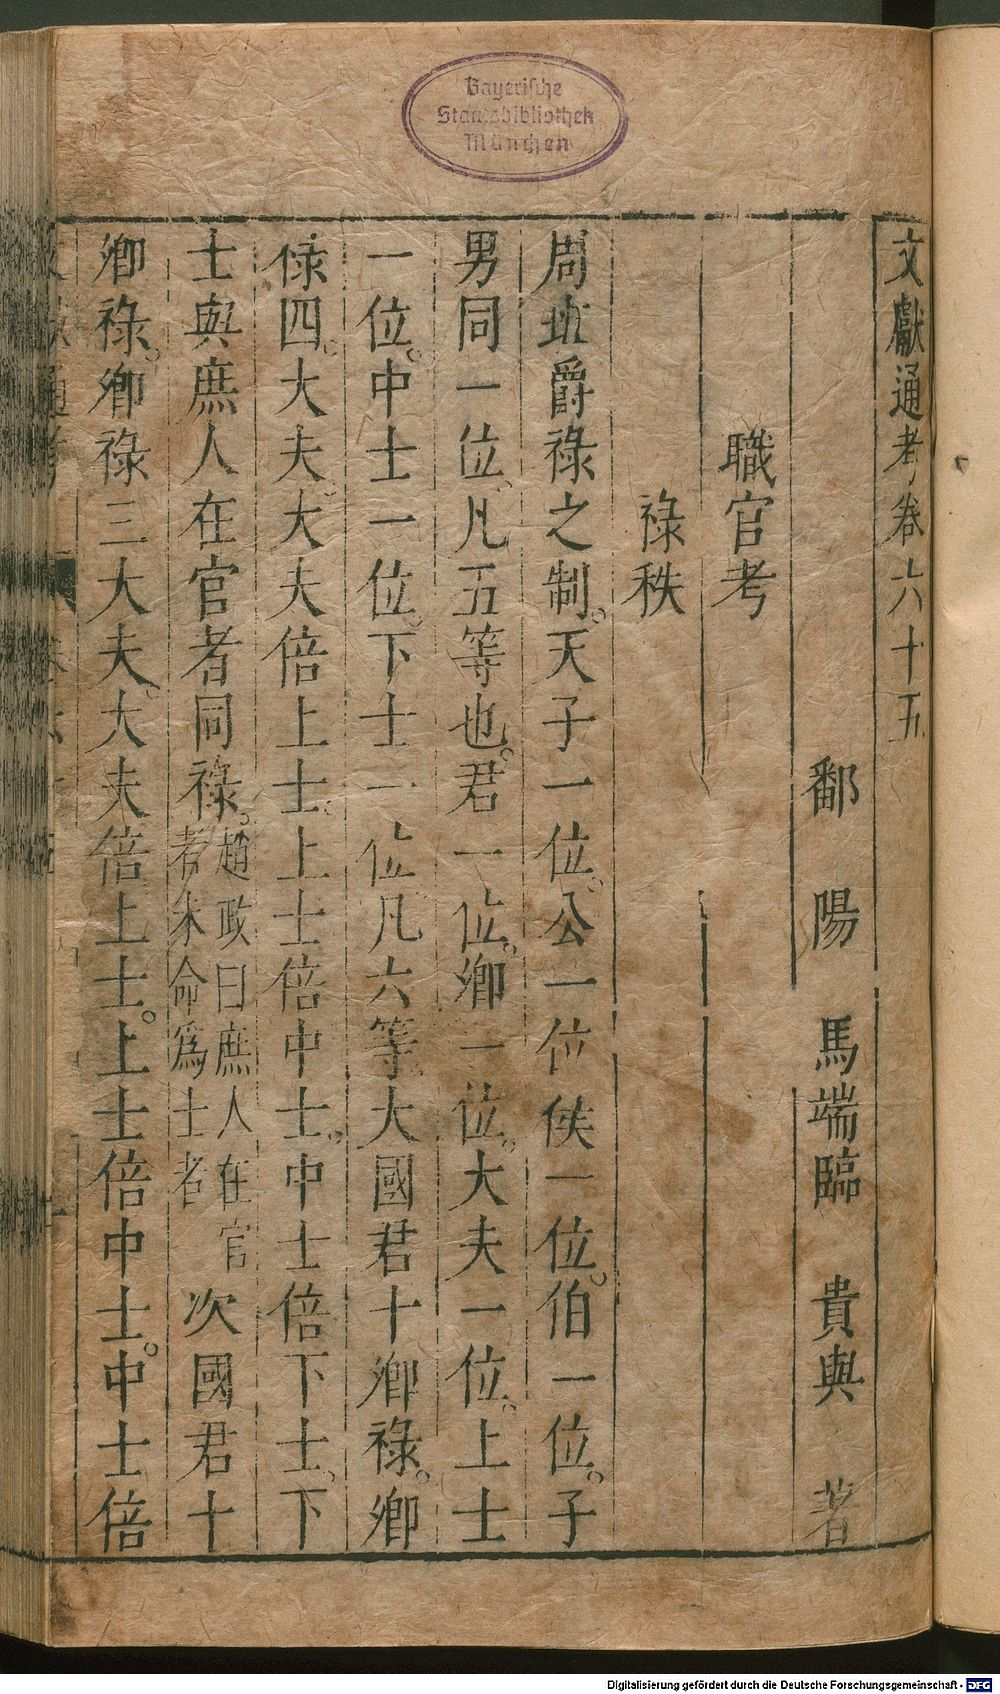 Bayerische
Staatsbibliothek
München
文獻通考卷六十五
鄱陽馬端臨貴與著
職官考
祿秩
周班爵祿之制。天子一位。公一位侯一位。伯一位。子
男同一位。凡五等也。君一位。卿一位。大夫一位。上士
一位。中士一位。下士一位凡六等大國君十卿祿。卿
祿四。大夫大夫倍上士。上士倍中士。中士倍下士。下
士與庶人在官者同祿。趙政曰庶人在官
者未命爲士者次國君十
卿祿。卿祿三大夫。大夫倍上士。上士倍中士。中士倍
Digitalisierung gefördert durch die Deutsche Forschungsgemeinschaft - DFG